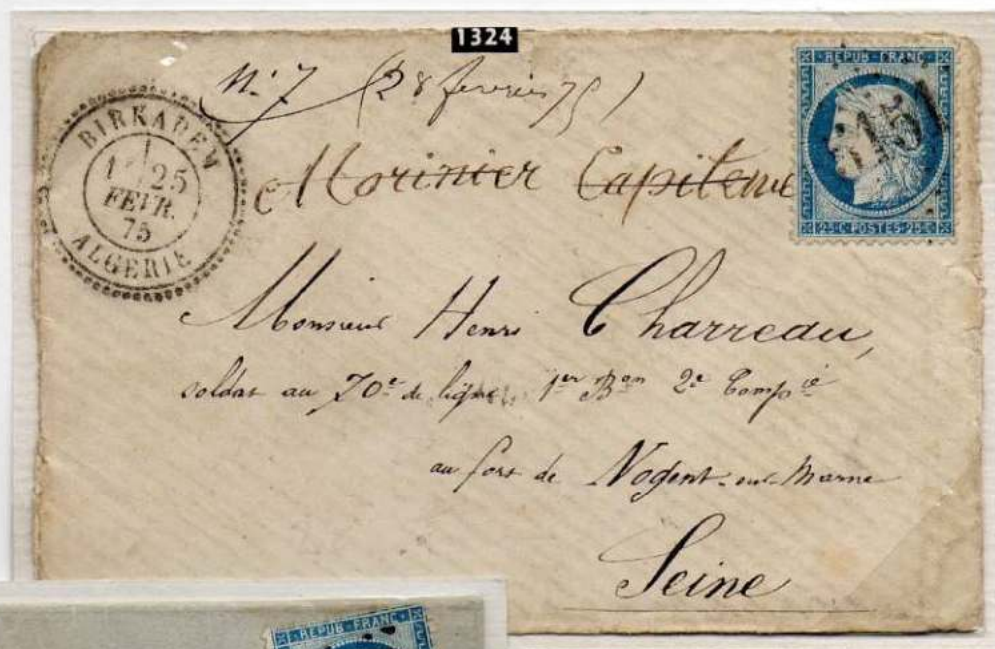 1324
N: 7 (28 fevrier 75)
BIRKADEM
25
FEVR.
75
ALGERIE
REPUB FRANC
25 C POSTES 25 C
Morinier Capitaine
Monsieur Henri Charreau,
soldat au 70e de ligne 1er Bon 2e Compie
au fort de Nogent-sur-Marne
Seine
REPUB FRANC